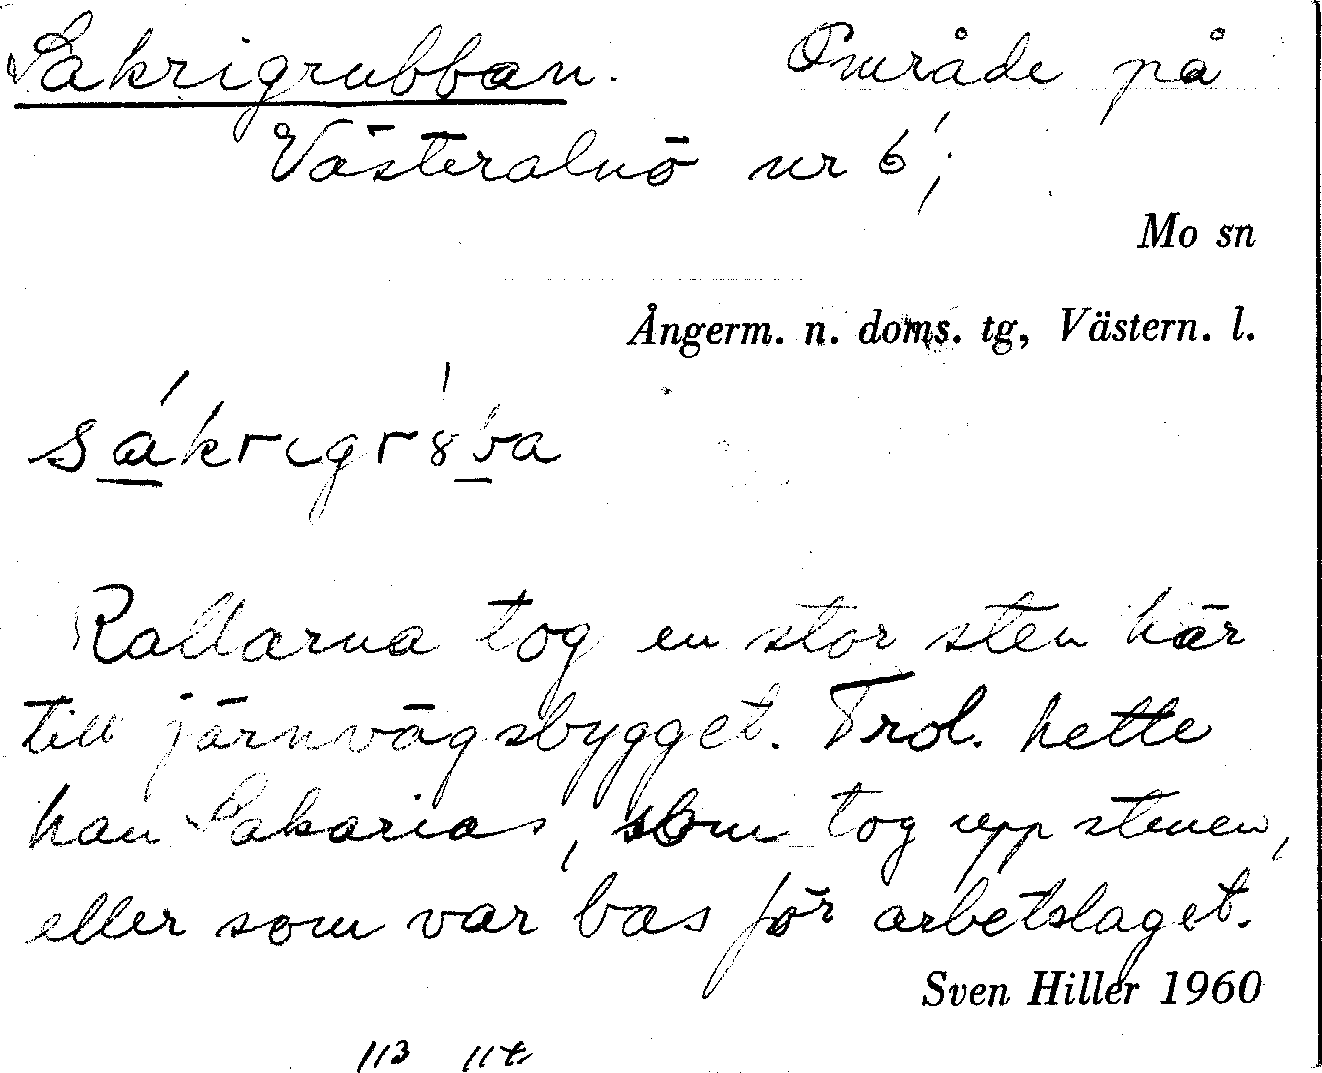 Sakrigrubban. Område på
Västeralnö nr 6¹;
Mo sn
Ångerm. n. doms. tg, Västern. l.
Rallarna tog en stor sten här
till järnvägsbygget. Trol. hette
han Sakarias, som tog upp stenen,
eller som var bas för arbetslaget.
Sven Hiller 1960
113 114